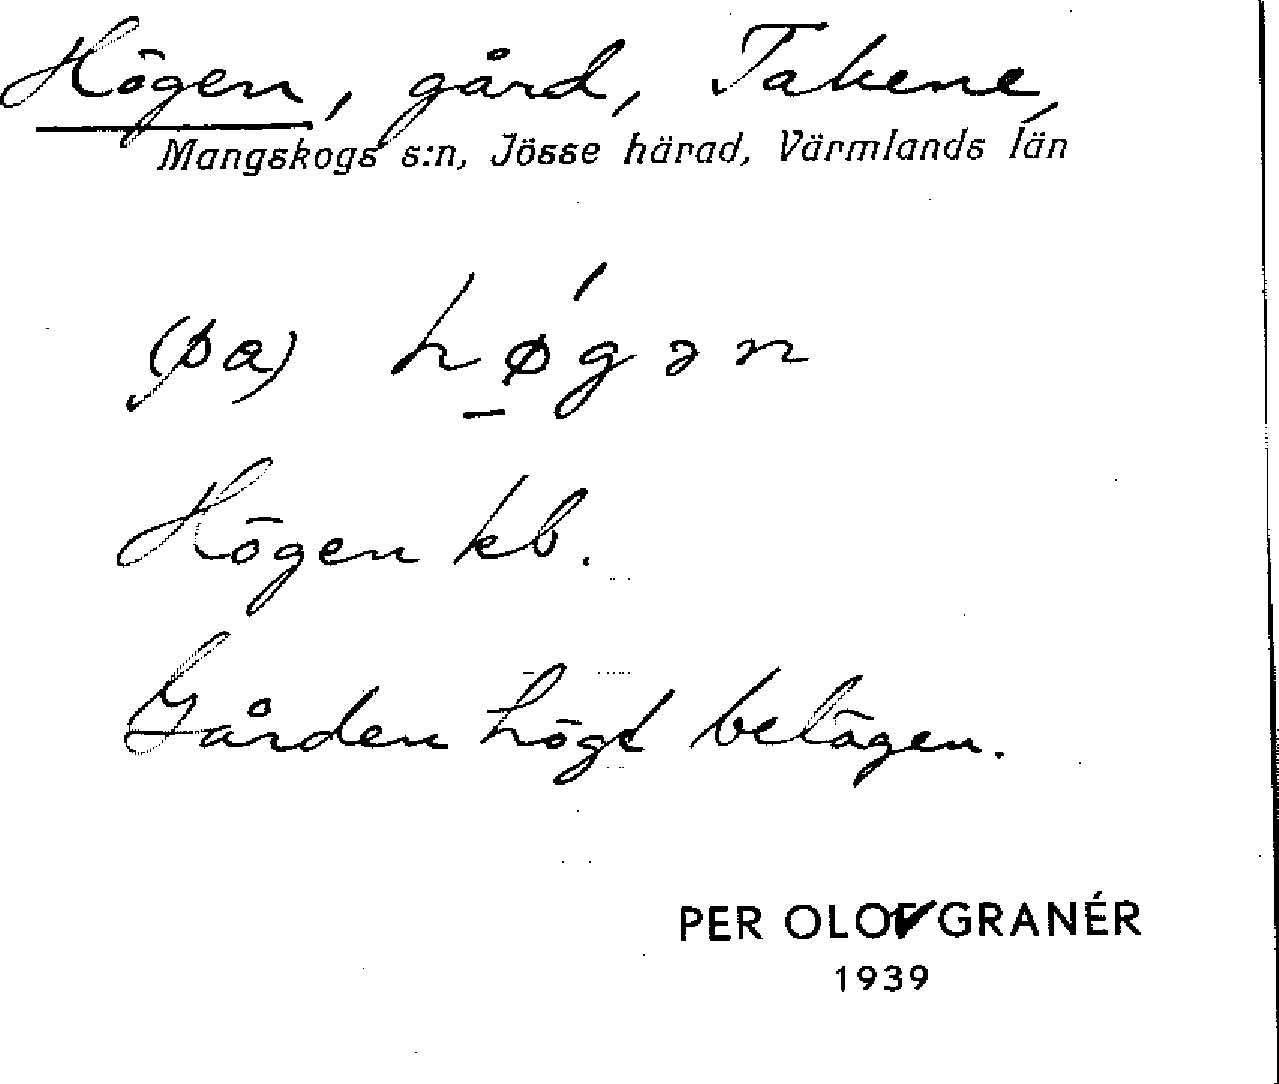 Högen, gård, Takene,
Mangskogs s:n, Jösse härad, Värmlands län
(pa) hǿ̱gən
Högen kb.
Gården högt belägen.
PER OLOF GRANÉR
1939